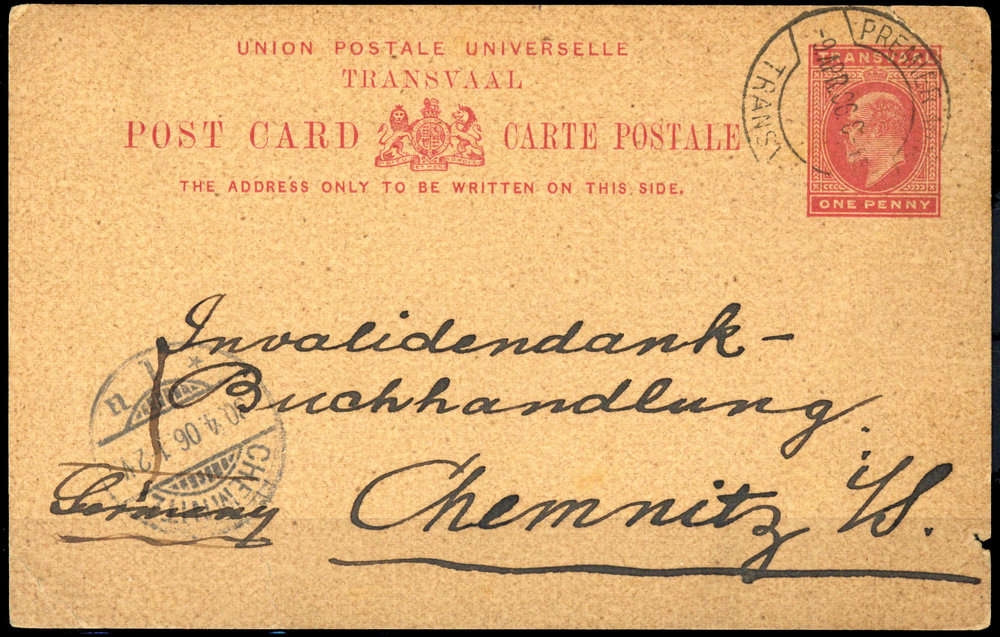 UNION POSTALE UNIVERSELLE
TRANSVAAL
POST CARD CARTE POSTALE
THE ADDRESS ONLY TO BE WRITTEN ON THIS SIDE.
TRANSVAAL
ONE PENNY
PREMIER
APR 06
TRANSV
Invalidendank-
Buchhandlung.
Chemnitz i/S.
Germany
CHEMNITZ
4 06